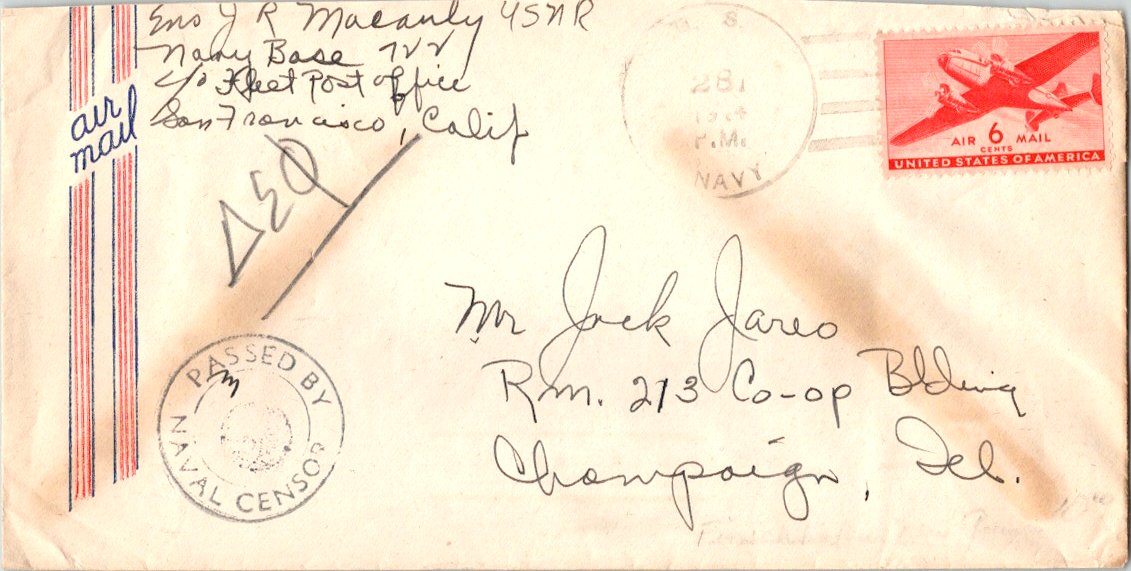 Ens J R Macauly USNR
Navy Base 722
c/o Fleet Post office
San Francisco, Calif
air
mail
U. S.
281
P.M.
NAVY
AIR 6 MAIL
CENTS
UNITED STATES OF AMERICA
Mr Jack Jareo
Rm. 213 Co-op Bldding
Champaign, Ill.
PASSED BY
NAVAL CENSOR